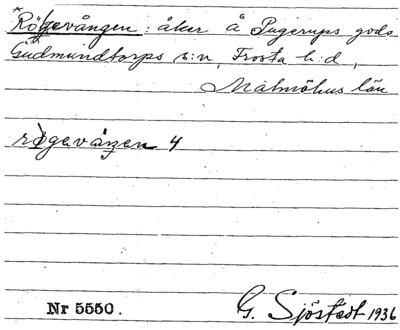 *Rögevången: åker å Pugerups gods
Gudmundtorps s:n, Frosta h:d,
Malmöhus län
rögevången 4
Nr 5550.
G. Sjöstedt 1936